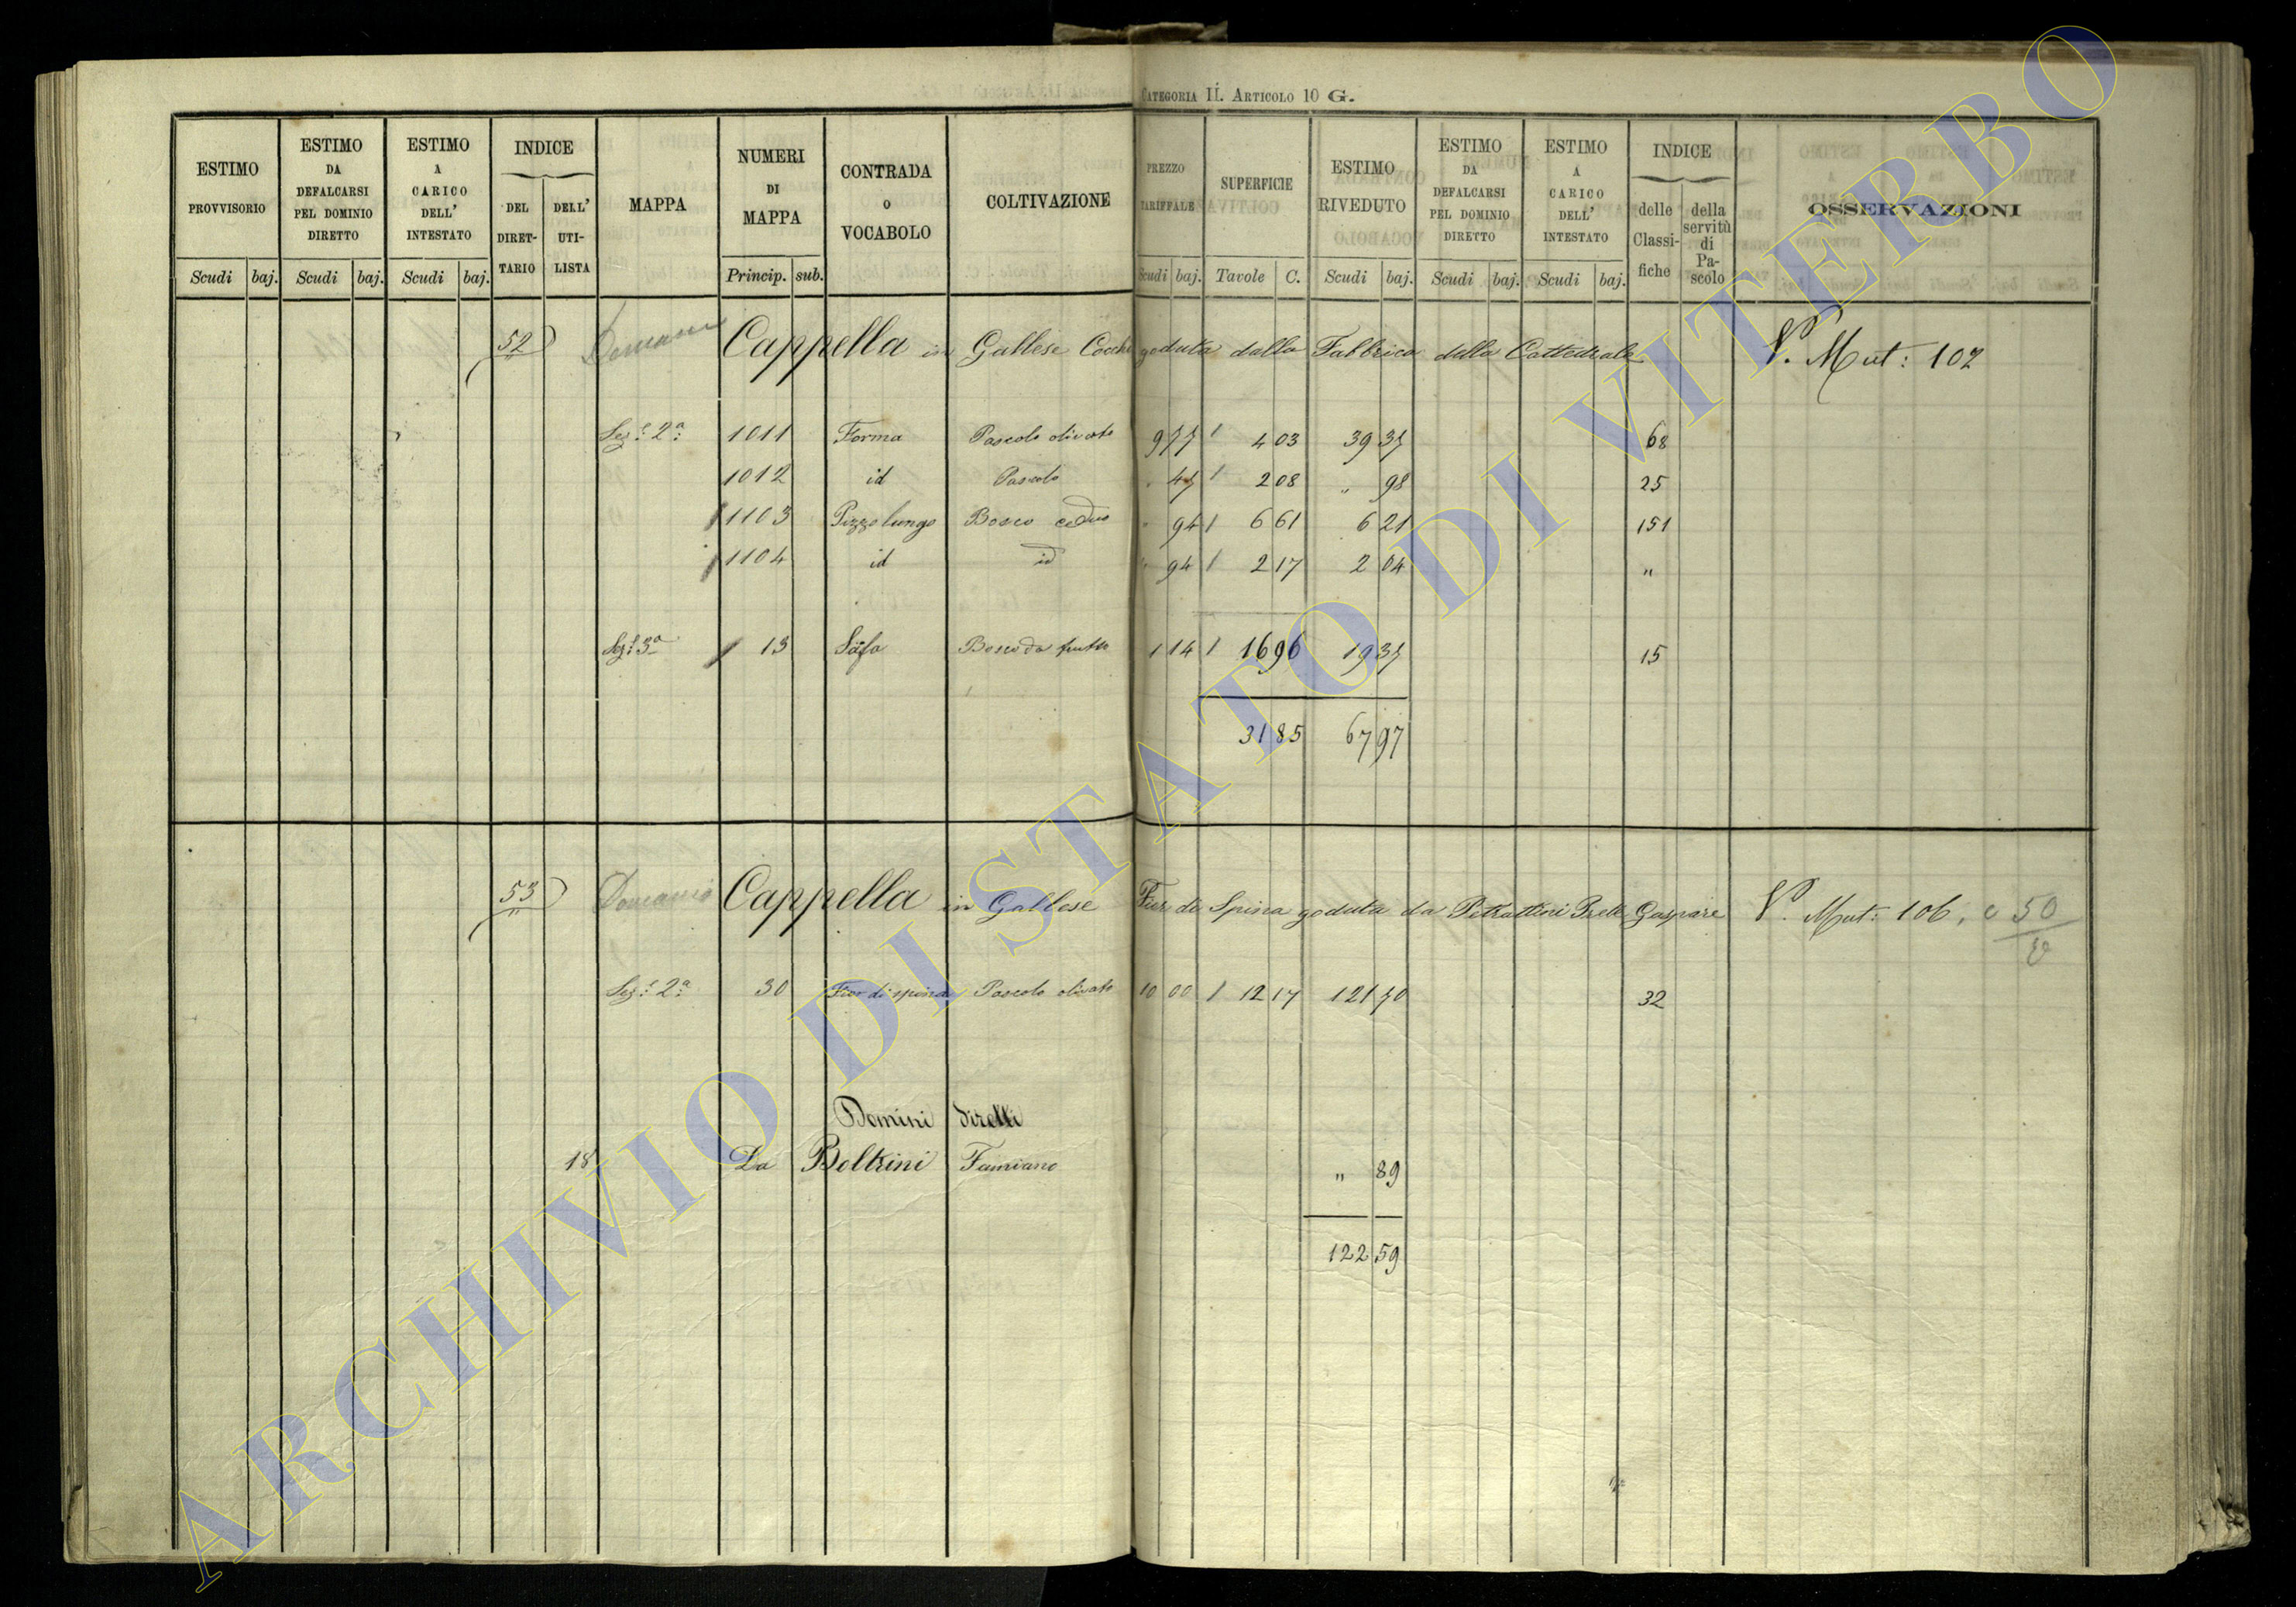 CATEGORIA II. ARTICOLO 10 G.
ESTIMO PROVVISORIO Scudi baj.
ESTIMO DA DEFALCARSI PEL DOMINIO DIRETTO Scudi baj.
ESTIMO A CARICO DELL' INTESTATO Scudi baj.
INDICE DEL DIRET-TARIO DELL' UTI-LISTA
MAPPA
NUMERI DI MAPPA Princip. sub.
CONTRADA o VOCABOLO
COLTIVAZIONE
PREZZO TARIFFALE Scudi baj.
SUPERFICIE Tavole C.
ESTIMO RIVEDUTO Scudi baj.
ESTIMO DA DEFALCARSI PEL DOMINIO DIRETTO Scudi baj.
ESTIMO A CARICO DELL' INTESTATO Scudi baj.
INDICE delle Classi-fiche della servitù di Pa-scolo
OSSERVAZIONI
52 Demanio Cappella in Gallese goduta dalla Fabbrica della Cattedrale V. Mut: 107
Sez.e 2a 1011 Forma Pascolo olivato 9 77 4 03 39 37 68
1012 id Pascolo " 47 2 08 " 98 25
1103 Pizzo lungo Bosco ceduo " 94 6 61 6 21 151
1104 id id " 94 2 17 2 04 "
Sez.e 3a 13 Bosco da frutto 1 14 16 96 19 37 15
31 85 67 97
53 Demanio Cappella in Gallese Fior di Spina goduta da Petrattini Prete Gaspare V. Mut: 106, e 50
Sez.e 2a 30 Fior di spina Pascolo olivato 10 00 12 17 121 70 32
Domini diretti
18 Da Beltrini Famiano " 89
122 59
ARCHIVIO DI STATO DI VITERBO